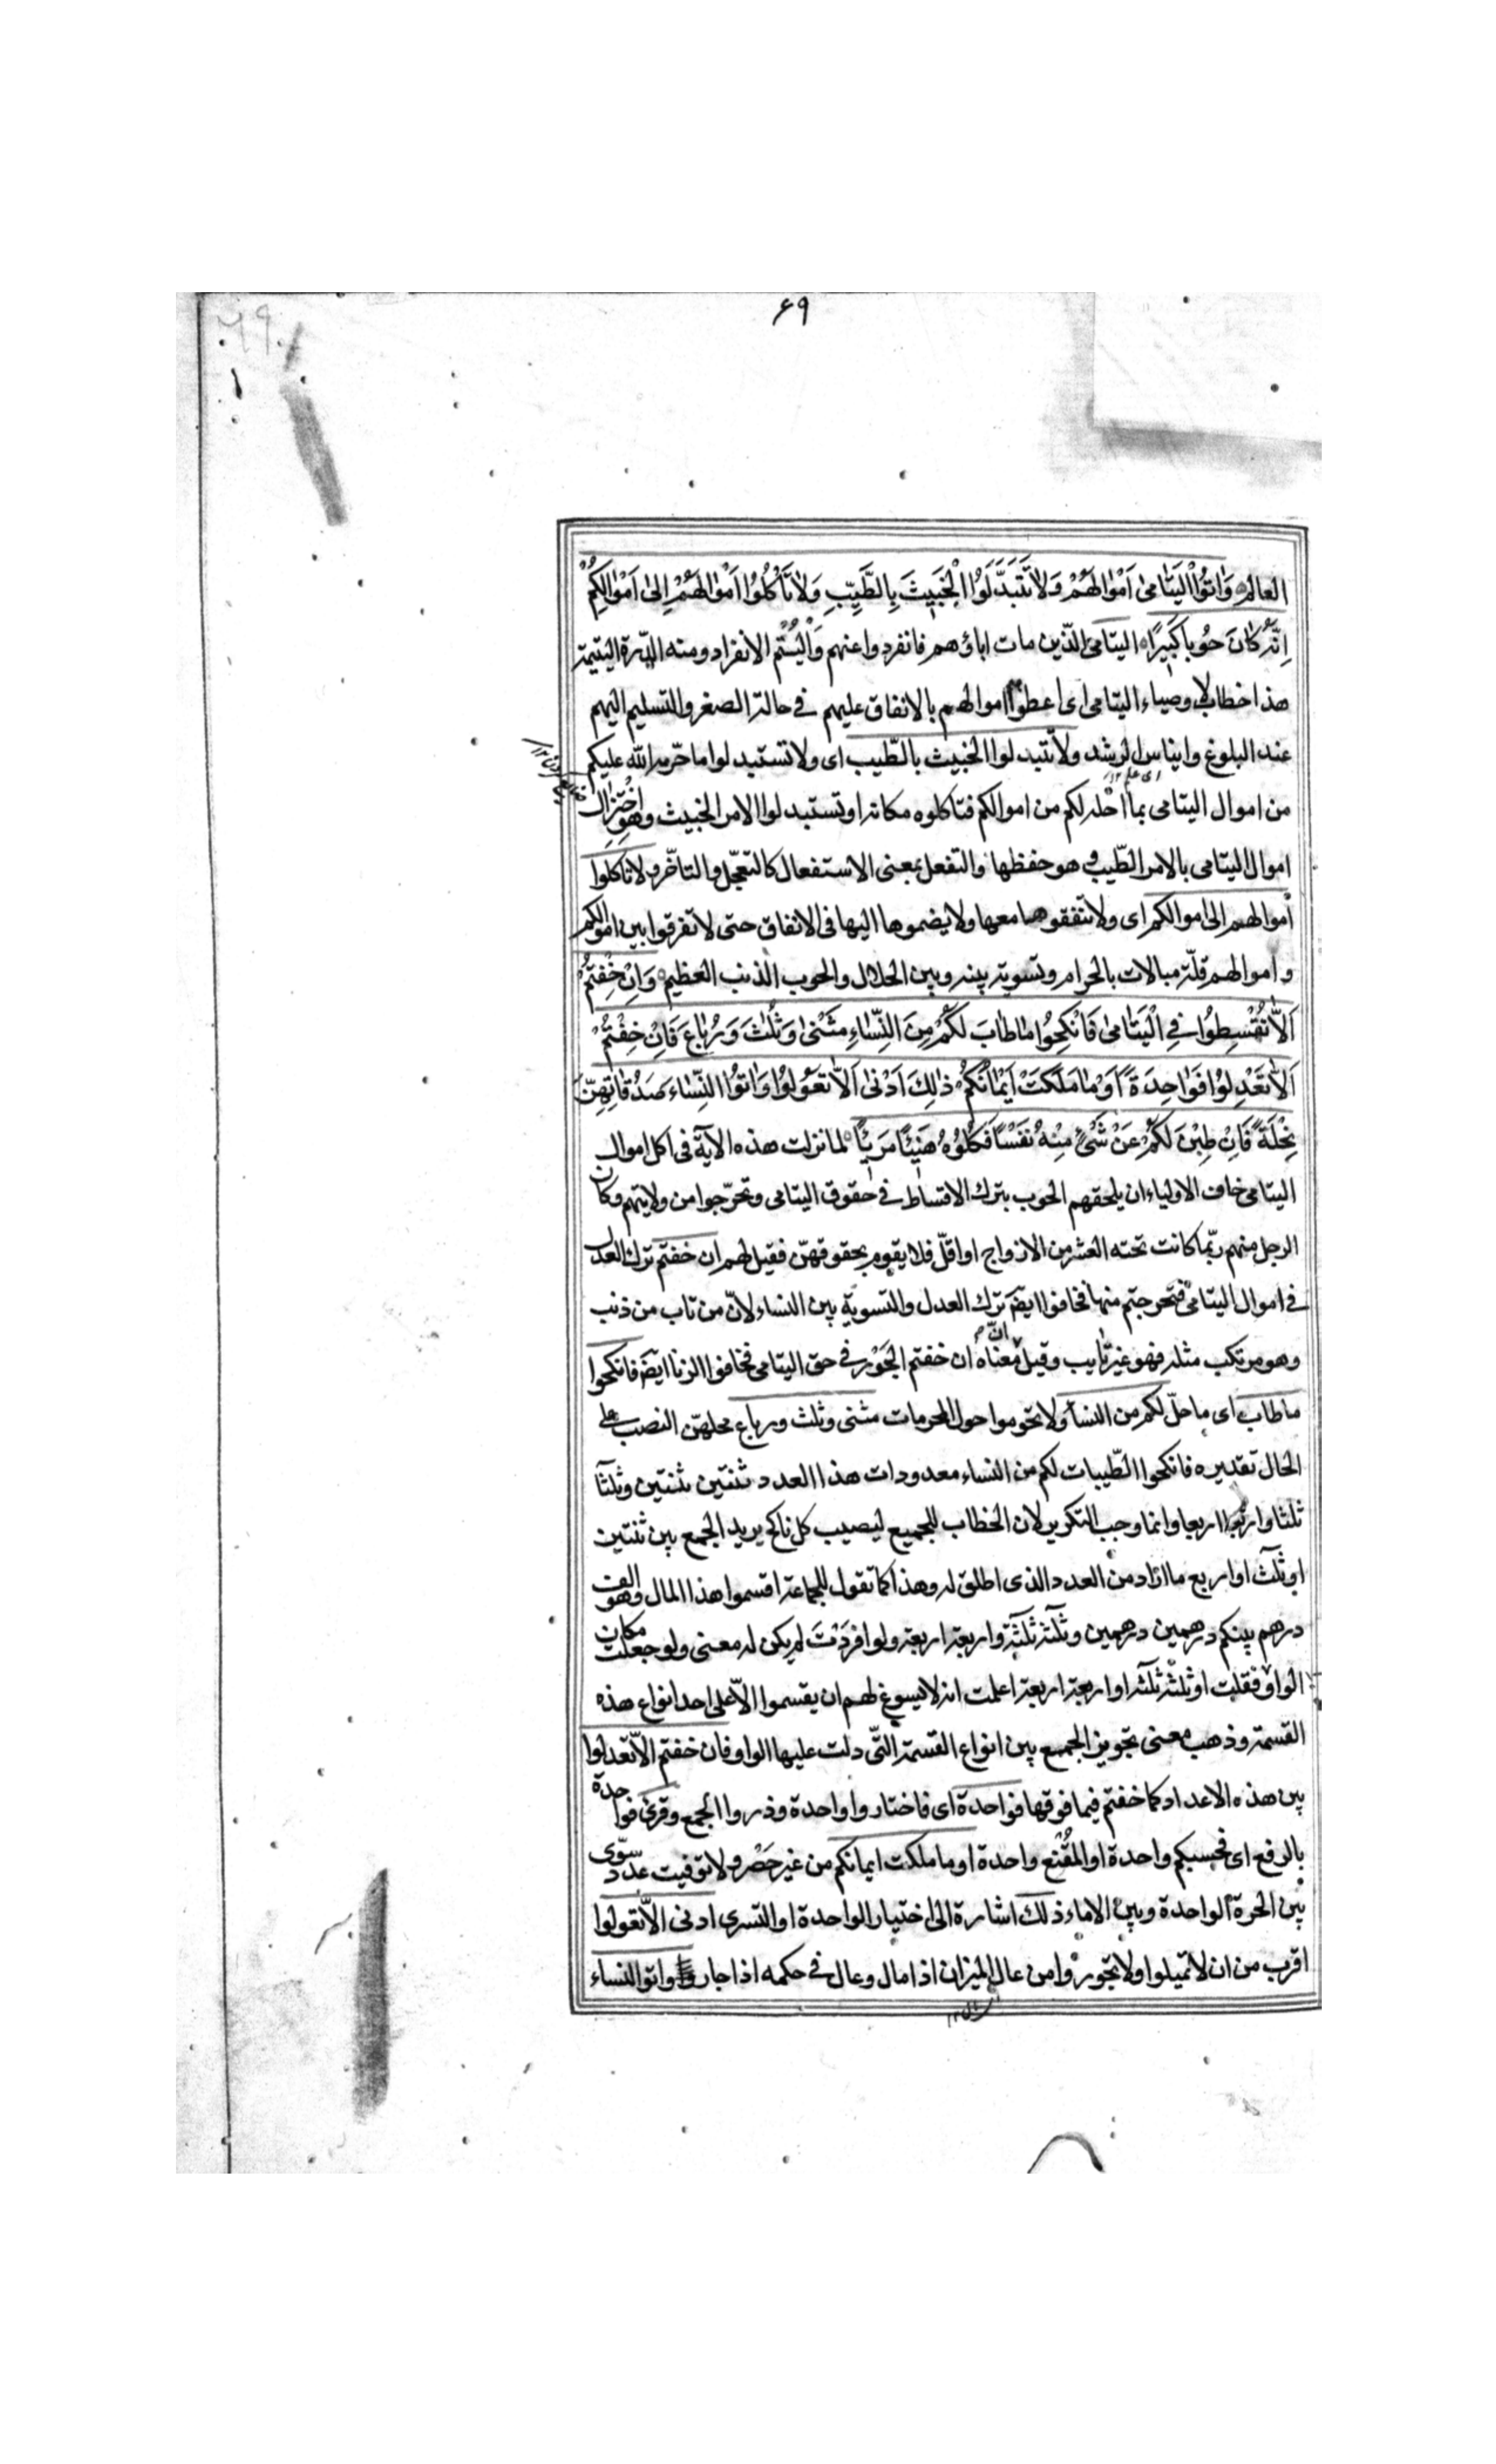 ۶۹
العالم وَاٰتُوا الْيَتَامىٰ اَمْوَالَهُمْ وَلَا تَتَبَدَّلُوا الْخَبِيثَ بِالطَّيِّبِ وَلَا تَأْكُلُوا اَمْوَالَهُمْ اِلىٰ اَمْوَالِكُمْ
اِنَّهُ كَانَ حُوبًا كَبِيرًا اليتامى الّذين مات اباؤهم فانفردوا عنهم وَالْيُتْم الانفراد ومنه الدّرة اليتيمة
هذا خطاب لاوصياء اليتامى اى اعطوا اموالهم بالانفاق عليهم فى حالة الصغر والتسليم اليهم
عند البلوغ وايناس الرشد ولا تتبدلوا الخبيث بالطّيب اى ولا تستبدلوا ما حرّمه الله عليكم
اى على
من اموال اليتامى بما احله لكم من اموالكم فتاكلوه مكانه او تستبدلوا الامر الخبيث وهو اخْتِزال
اموال اليتامى بالامر الطّيب وهو حفظها والتفعل بمعنى الاستفعال كالتعجّل والتاخّر ولا تاكلوا
اموالهم الى اموالكم اى ولا تنفقوها معها ولا يضموها اليها فى الانفاق حتى لا تفرقوا بين اموالكم
واموالهم قلّة مبالات بالحرام وتسوية بينه وبين الحلال والحوب الذنب العظيم وَاِنْ خِفْتُمْ
اَلَّا تُقْسِطُوا فِى الْيَتَامىٰ فَانْكِحُوا مَا طَابَ لَكُمْ مِنَ النِّسَاءِ مَثْنىٰ وَثُلٰثَ وَرُبَاعَ فَاِنْ خِفْتُمْ
اَلَّا تَعْدِلُوا فَوَاحِدَةً اَوْ مَا مَلَكَتْ اَيْمَانُكُمْ ذٰلِكَ اَدْنىٰ اَلَّا تَعُولُوا وَاٰتُوا النِّسَاءَ صَدُقَاتِهِنَّ
نِحْلَةً فَاِنْ طِبْنَ لَكُمْ عَنْ شَىْءٍ مِنْهُ نَفْسًا فَكُلُوهُ هَنِيْئًا مَرِيْئًا لما نزلت هذه الآية فى اكل اموال
اليتامى خاف الاولياء ان يلحقهم الحوب بترك الاقتساط فى حقوق اليتامى وتحرّجوا من ولايتهم وكان
الرجل منهم ربّما كانت تحته العشر من الازواج او اقلّ فلا يقوم بحقوقهنّ فقيل لهم ان خفتم ترك العدل
فى اموال اليتامى فتحرجتم منها فخافوا ايضَ ترك العدل والتسوية بين النساء لانّ من تاب من ذنب
وهو مرتكب مثله فهو غير تايب وقيل معناه ان خفتم الجَوْر فى حق اليتامى فخافوا الزنا ايضَ فانكحوا
ما طاب اى ما حلّ لكم من النساء ولا تحوموا حول المحرمات مثنى وثلث ورباع محلهنّ النصب على
الحال تقديره فانكحوا الطّيبات لكم من النساء معدودات هذا العدد ثنتين ثنتين وثلثا
ثلثا واربعا اربعا وانما وجب التكرير لان الخطاب للجميع ليصيب كل ناكح يريد الجمع بين ثنتين
او ثلث او اربع ما اراد من العدد الذى اطلق له وهذا كما تقول للجماعة اقسموا هذا المال وهو الف
درهم بينكم درهمين درهمين وثلثة ثلثة واربعة اربعة ولو افردْتَ لم يكن له معنى ولو جعلت مكان
الواو فقلت او ثلثة ثلثة او اربعة اربعة اعلمت انه لا يسوغ لهم ان يقسموا الّا على احد انواع هذه
القسمة وذهب معنى تجويز الجمع بين انواع القسمة التّى دلت عليها الواو فان خفتم الّا تعدلوا
بين هذه الاعداد كما خفتم فيما فوقها فواحدة اى فاختاروا واحدة وذروا الجمع وقرئ فواحدة
بالرفع اى فحسبكم واحدة او المقْنع واحدة او ما ملكت ايمانكم من غير حَصْر ولا توقيت عدد سوّى
بين الحرة الواحدة وبين الاماء ذلك اشارة الى اختيار الواحدة او التسرى ادنى الّا تعولوا
اقرب من ان لا تميلوا ولا تجوروا من عال الميزان اذا مال وعال فى حكمه اذا جار واتوا النساء